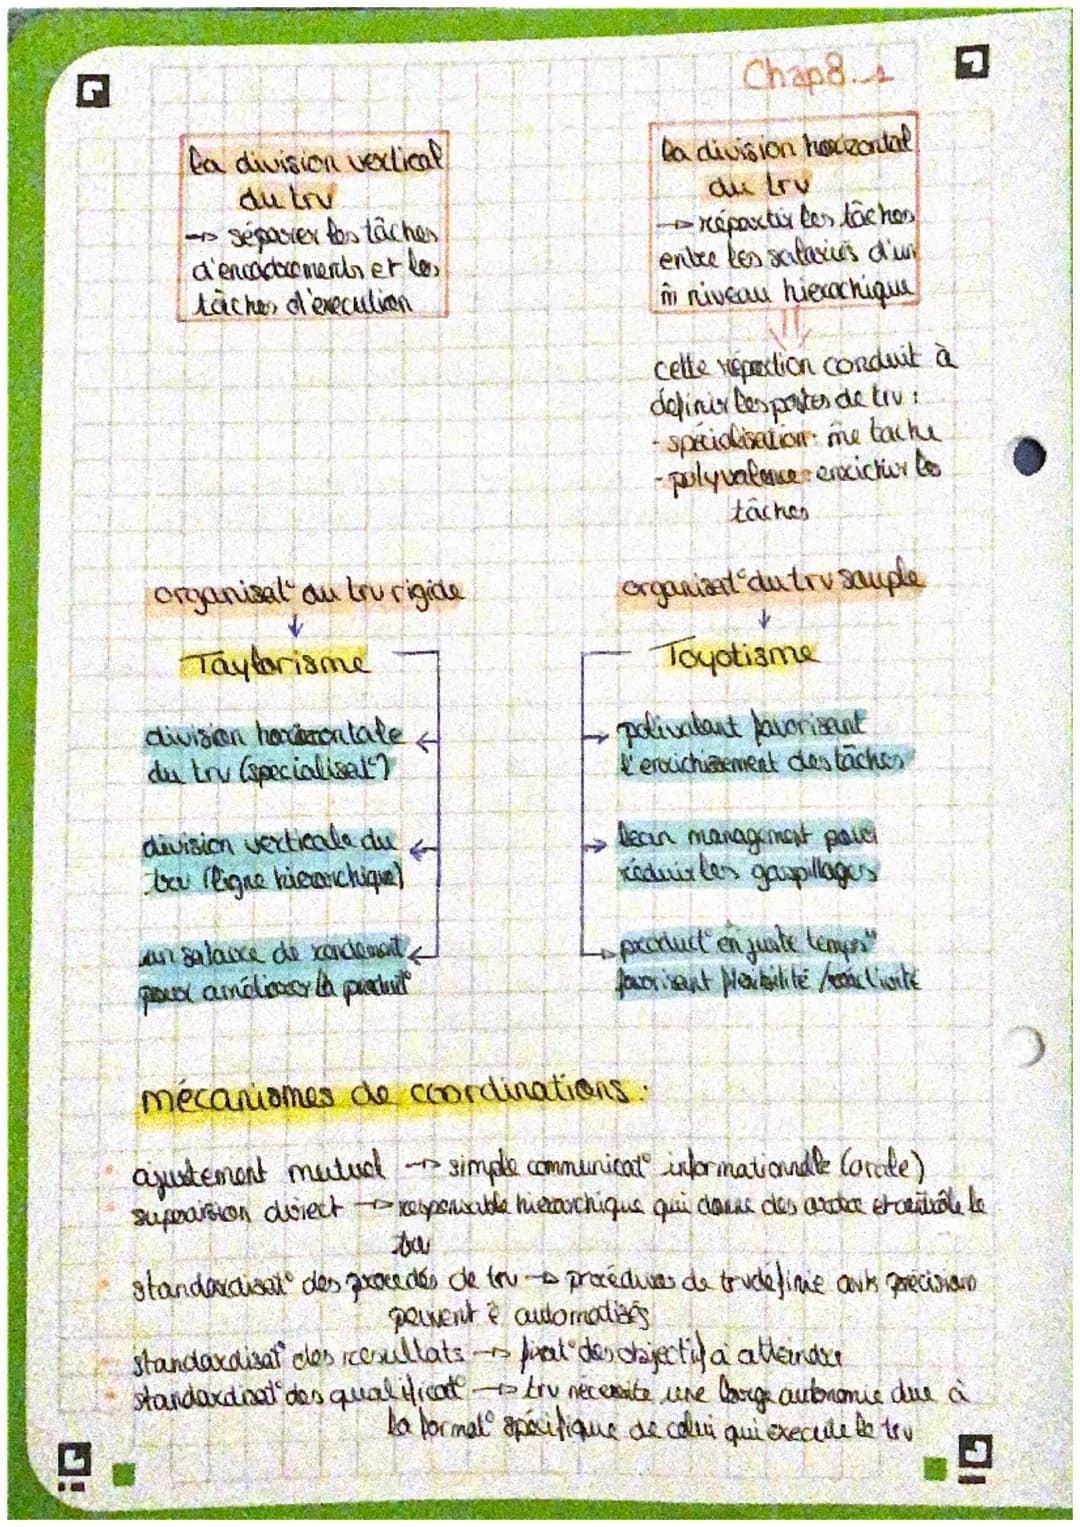 Chap 8.1
La division vertical
du trv
→ séparer les tâches
d'encadrements et les
tâches d'execution
La division horizontal
du trv
→ répartir les tâches
entre les salariés d'un
m̂ niveau hierachique
cette répartion conduit à
definir les postes de trv :
- spécialisation : me tache
- polyvalence : enrichir les
tâches
organisat° du trv rigide
↓
Taylorisme
division horizontale
du trv (specialisat°)
division verticale du
trv (ligne hierarchique)
un salaire de rendement
pour améliorer la product°
organisat° du trv souple
↓
Toyotisme
polivalent favorisant
l'enrichissement des tâches
lean management pour
réduire les gaspillages
product° en "juste temps"
favorisant flexibilité / réactivité
mécanismes de coordinations :
ajustement mutuel → simple communicat° informationnelle (orale)
supervision direct → responsable hierarchique qui donne des ordre et contrôle le
trv
standardisat° des procedés de trv → procédures de trv définie avec précision
peuvent ê automatisés
standardisat° des resultats → fixat° des objectif à atteindre
standardisat° des qualificat° → trv necessite une large autonomie due à
la format° spécifique de celui qui execute le trv